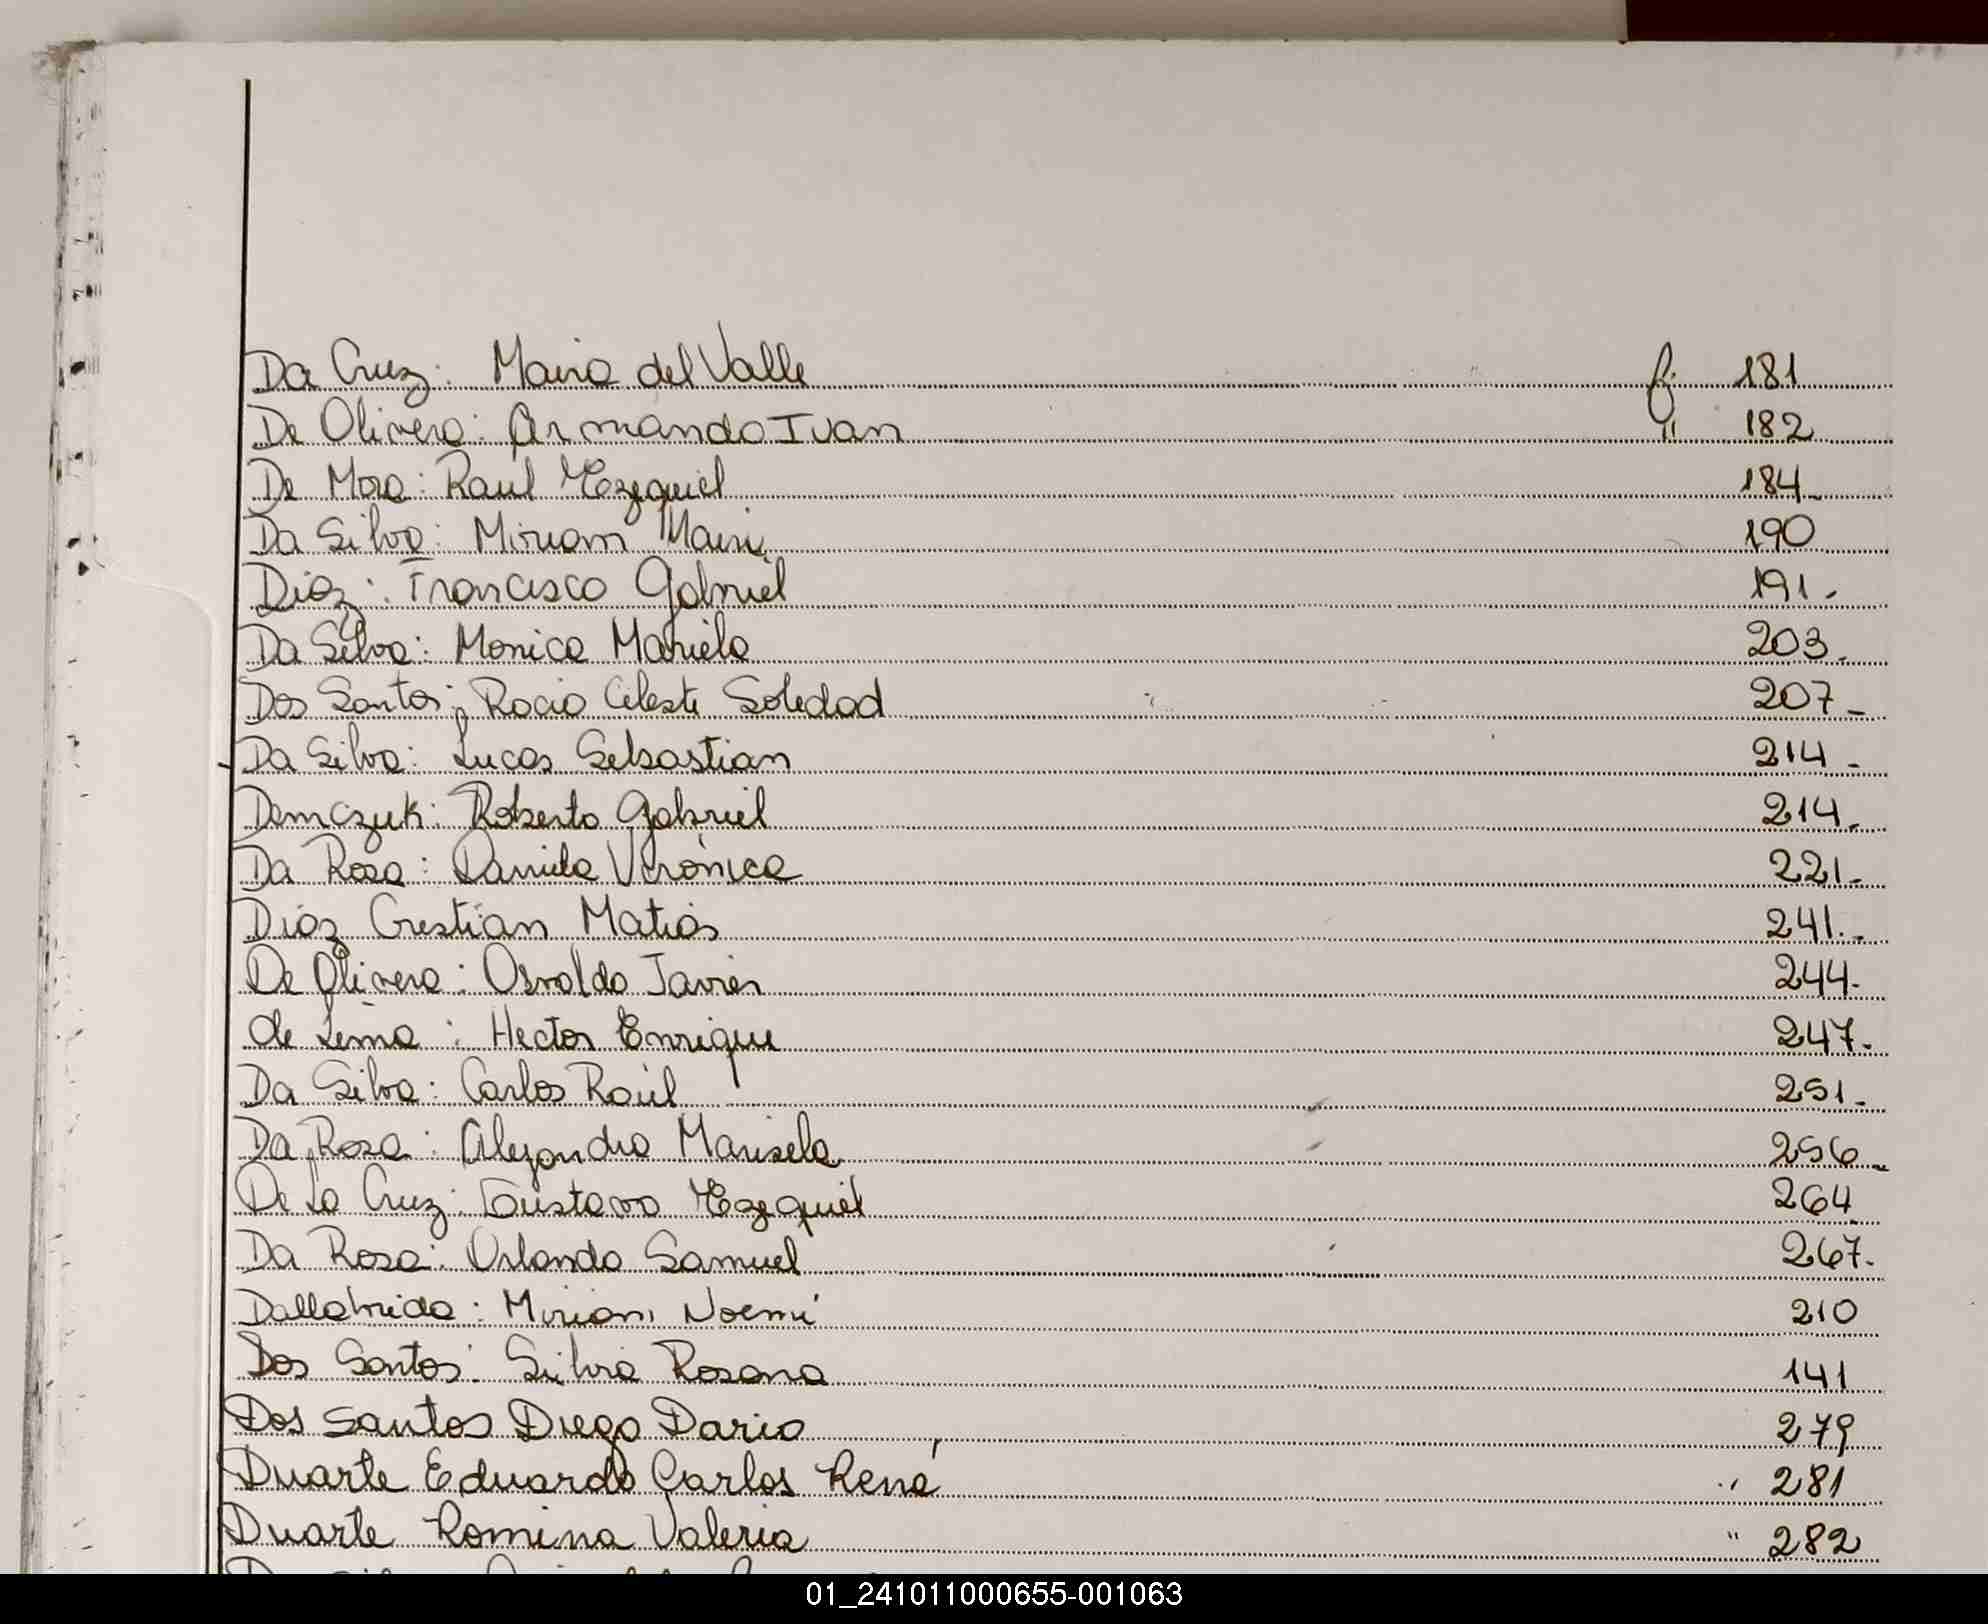 Da Cruz: Maria del Valle f: 181
De Olivera: Armando Ivan " 182
De Mora: Raúl Ezequiel 184
Da Silva: Miriam Mari 190
Diaz: Francisco Gabriel 191.
Da Silva: Monica Mariela 203.
Dos Santos: Rocio Celeste Soledad 207-
Da Silva: Lucas Sebastian 214-
Demczuk: Roberto Gabriel 214.
Da Rosa: Daniela Verónica 221-
Diaz Cristian Matias 241.-
De Olivera: Osvaldo Javier 244-
de Lima: Hector Enrique 247-
Da Silva: Carlos Raúl 251-
Da Rosa: Alejandra Marisela 256-
De La Cruz: Gustavo Ezequiel 264
Da Rosa: Orlando Samuel 267.
Dallabrida: Miriam Noemí 210
Dos Santos: Silvia Rosana 141
Dos Santos Diego Dario 279
Duarte Eduardo Carlos René " 281
Duarte Romina Valeria " 282
01_241011000655-001063